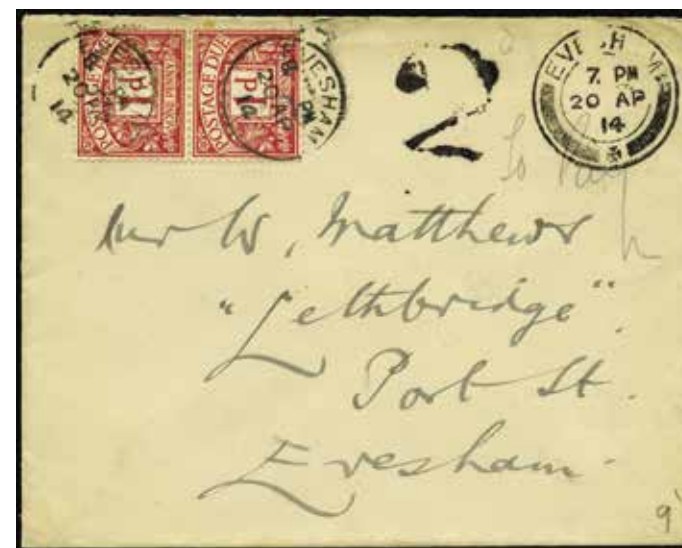 POSTAGE DUE
1D
ONE PENNY
20 AP
14
POSTAGE DUE
1D
EVESHAM
PM
20 AP
14
2
EVESHAM
7. PM
20 AP
14
To Pay
Mr W, Matthews
"Lethbridge".
Port St.
Evesham.
9